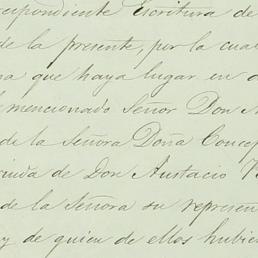 respondiente Escritura de
de la presente, por la cual
ma que haya lugar en d
l mencionado Señor Don A
de la Señora Doña Concep
viuda de Don Austacio
de la Señora su represen
y de quien de ellos hubie